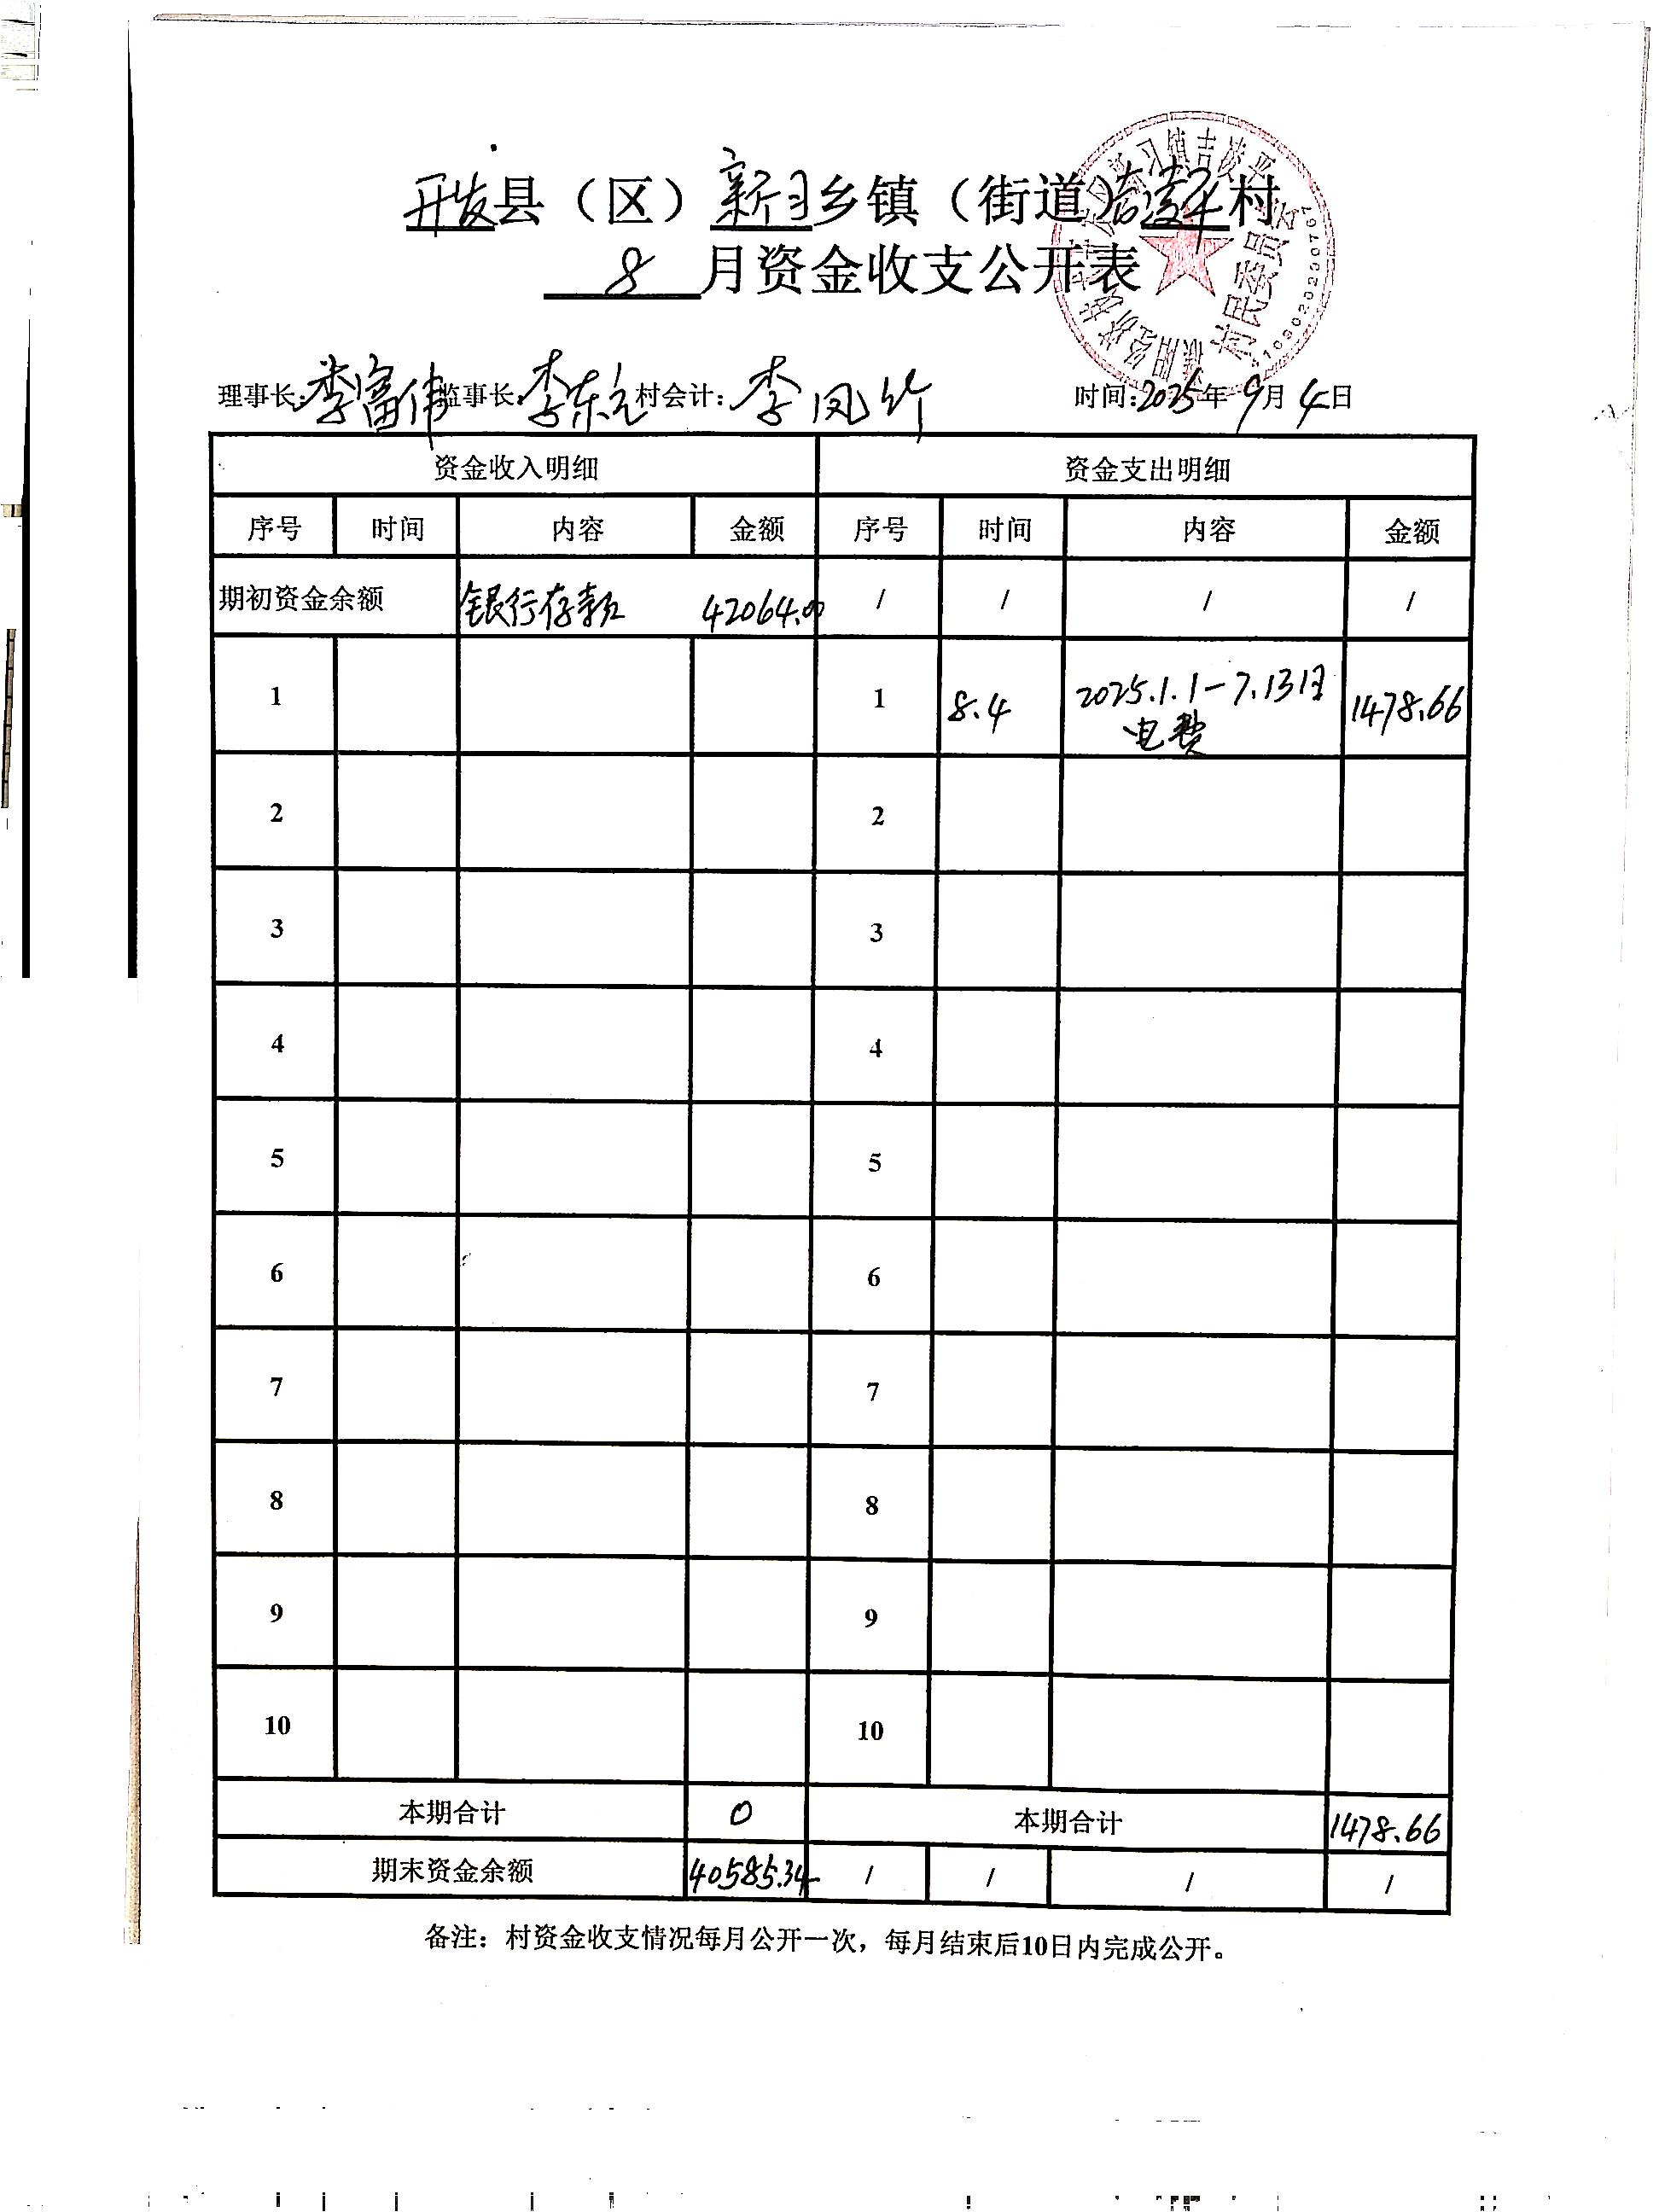 开发县（区）新习乡镇（街道）吉陵平村
8月资金收支公开表
理事长:李富伟 监事长:李东元 村会计:李凤竹 时间:2025年9月4日
资金收入明细 资金支出明细
序号 时间 内容 金额 序号 时间 内容 金额
期初资金余额 银行存款 42064.00 / / / /
1 1 8.4 2025.1.1-7.13日电费 1478.66
2 2
3 3
4 4
5 5
6 6
7 7
8 8
9 9
10 10
本期合计 0 本期合计 1478.66
期末资金余额 40585.34 / / / /
备注：村资金收支情况每月公开一次，每月结束后10日内完成公开。
村民委员会